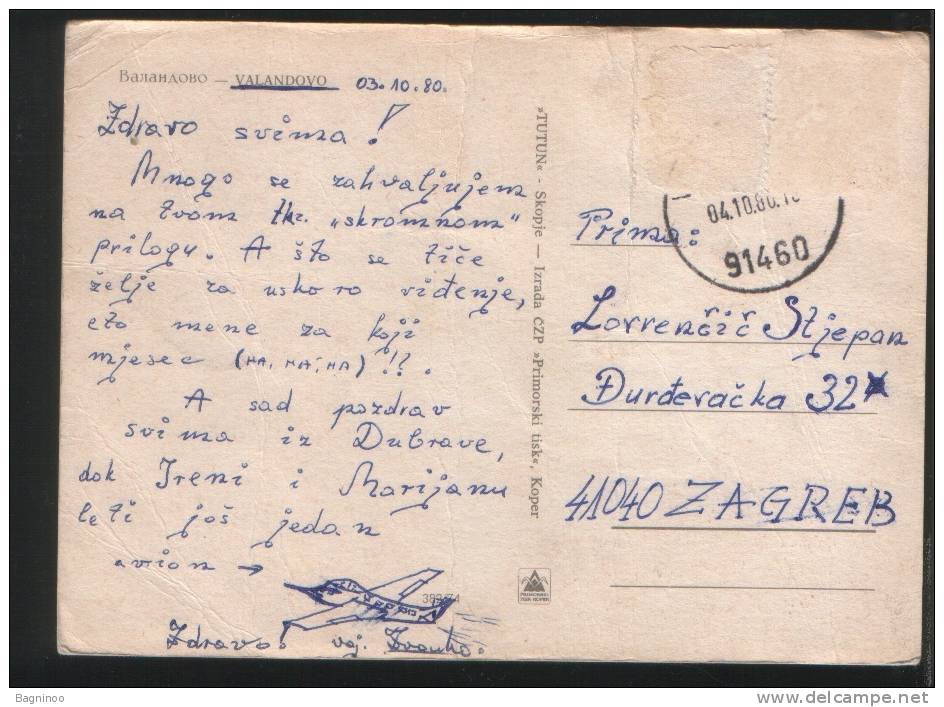 Валандово — VALANDOVO 03.10.80.
Zdravo svima!
Mnogo se zahvaljujem
na tvom tkz. „skromnom“
prilogu. A što se tiče
želje za uskoro viđenje,
eto mene za koji
mjesec (HA, HA, HA)!?.
A sad pozdrav
svima iz Dubrave,
dok Ireni i Marijanu
leti još jedan
avion →
Zdravo! voj. Zvonko.
382/74
»TUTUN« - Skopje — Izrada ČZP »Primorski tisk«, Koper
PRIMORSKI
TISK KOPER
04.10.80.
91460
Prima:
Lovrenčić Stjepan
Đurđevačka 32
41040 ZAGREB
Bagninoo
delcampe.net